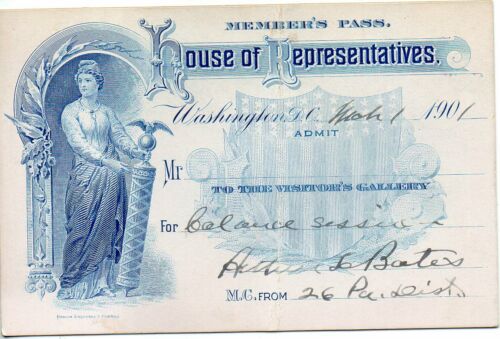 MEMBER'S PASS.
House of Representatives.
Washington D.C. Mch 1 1901
ADMIT
Mr
TO THE VISITOR'S GALLERY
For balance session
Arthur L Bates
M.C. FROM 26 Pa. Dist.